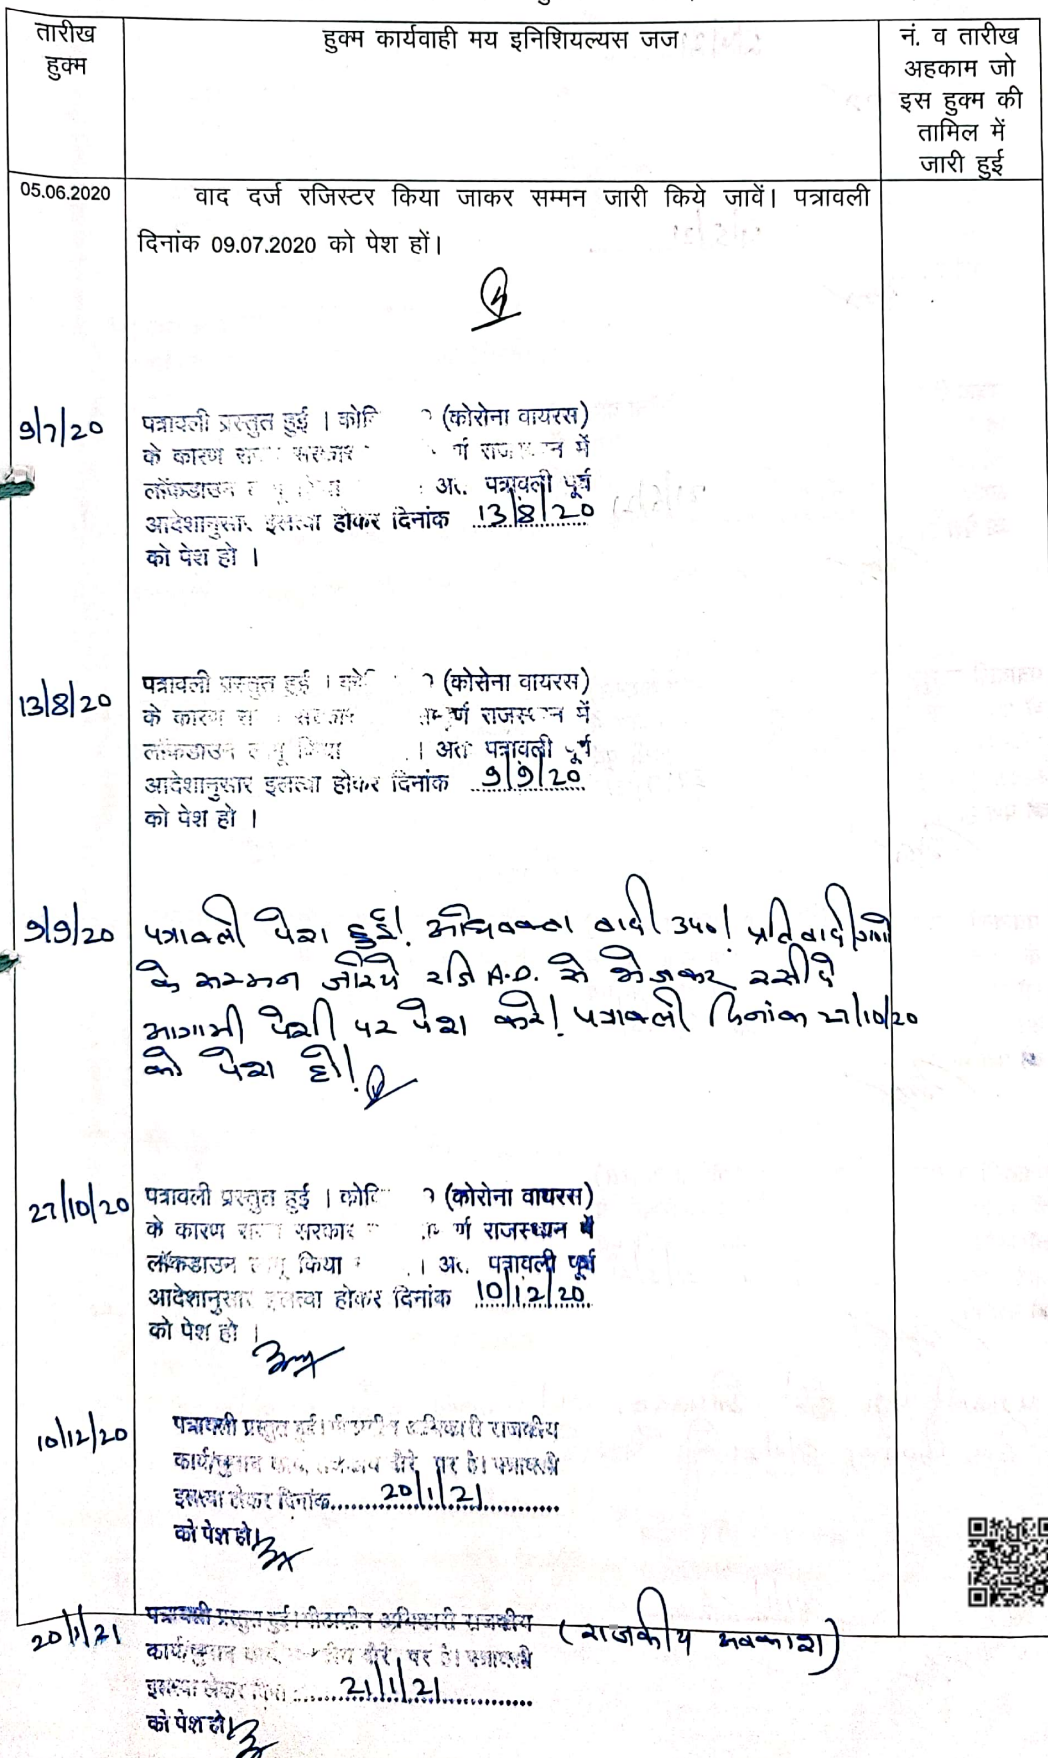 तारीख
हुक्म
हुक्म कार्यवाही मय इनिशियल्यस जज
नं. व तारीख
अहकाम जो
इस हुक्म की
तामिल में
जारी हुई
05.06.2020
वाद दर्ज रजिस्टर किया जाकर सम्मन जारी किये जावें। पत्रावली
दिनांक 09.07.2020 को पेश हों।
9/7/20
पत्रावली प्रस्तुत हुई । (कोरोना वायरस)
के कारण में
लॉकडाउन पत्रावली पूर्व
आदेशानुसार होकर दिनांक 13/8/20
को पेश हो ।
13/8/20
पत्रावली प्रस्तुत हुई । (कोरोना वायरस)
के कारण में
लॉकडाउन किया । पत्रावली पूर्व
आदेशानुसार इतल्वा होकर दिनांक 9/9/20
को पेश हो ।
9/9/20
पत्रावली पेश हुई! अधिवक्ता वादी उप०! प्रतिवादीगणो
के सम्मन जरिये रजि A.D. से भेजकर रसीदे
आगामी पेशी पर पेश करे! पत्रावली दिनांक 27/10/20
को पेश हो!
27/10/20
पत्रावली प्रस्तुत हुई । (कोरोना वायरस)
के कारण सरकार राजस्थान में
लॉकडाउन किया । पत्रावली पूर्व
आदेशानुसार होकर दिनांक 10/12/20
को पेश हो ।
10/12/20
पत्रावली प्रस्तुत हुई। अधिकारी राजकीय
दौरे पर है। पत्रावली
दिनांक 20/1/21
को पेश हो।
20/1/21
पत्रावली प्रस्तुत हुई। पीठासीन अधिकारी राजकीय (राजकीय अवकाश)
पर है। पत्रावली
21/1/21
को पेश हो।